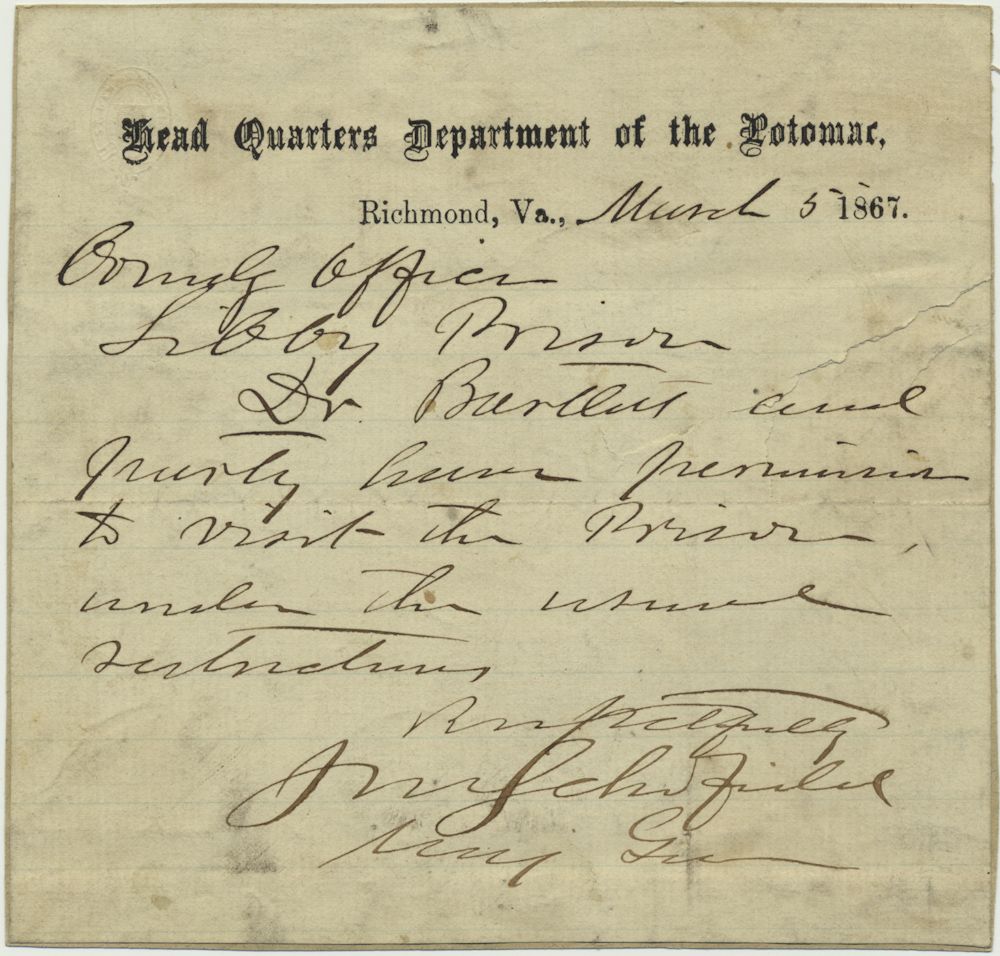 Head Quarters Department of the Potomac,
Richmond, Va., March 5 1867.
Comdg Officer
Libby Prison
Dr. Bartlett and
party have permission
to visit the Prison,
under the usual
restrictions
Respectfully
J M Schofield
Maj Gen